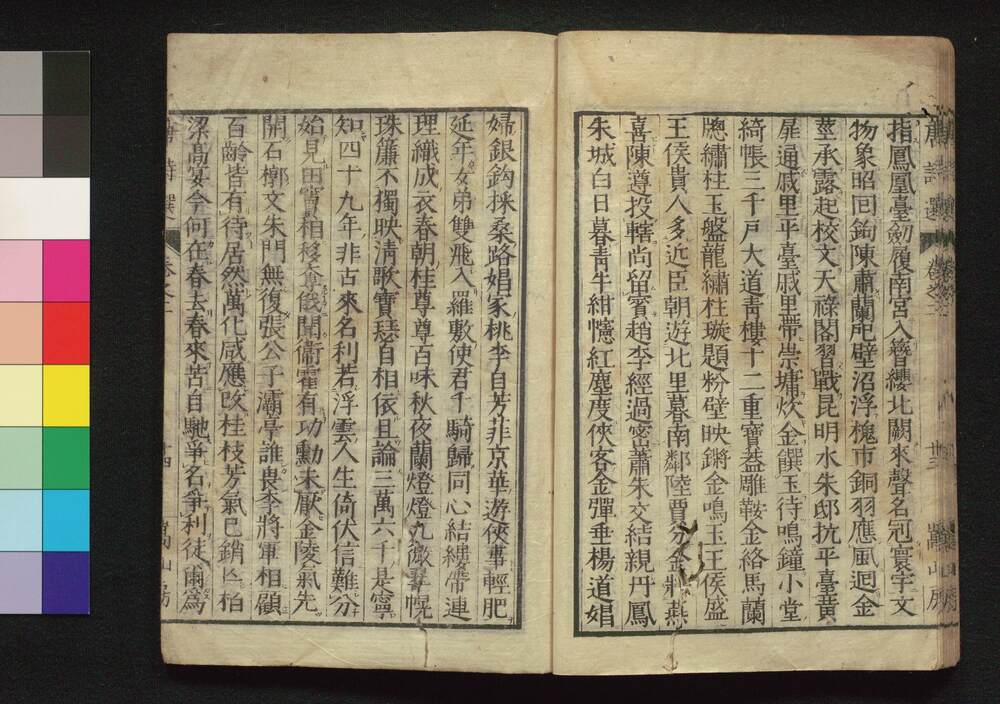 指鳳凰臺劒履南宮入簪纓北闕來聲名冠寰宇文
物象昭回鉤陳肅蘭戺壁沼浮槐市銅羽應風迴金
莖承露起校文天祿閣習戰昆明水朱邸抗平臺黃
扉通戚里平臺戚里帶崇墉炊金饌玉待鳴鐘小堂
綺帳三千戶大道青樓十二重寶蓋雕鞍金絡馬蘭
牕繡柱玉盤龍繡柱璇題粉壁映鏘金鳴玉王侯盛
王侯貴人多近臣朝遊北里暮南鄰陸賈分金將燕
喜陳遵投轄尚留賓趙李經過密蕭朱交結親丹鳳
朱城白日暮青牛紺幰紅塵度俠客金彈垂楊道娼
婦銀鈎採桑路娼家桃李自芳菲京華遊俠事輕肥
延年女弟雙飛入羅敷使君千騎歸同心結縷帶連
理織成衣春朝桂尊尊百味秋夜蘭燈燈九微翠幌
珠簾不獨映清歌寶瑟自相依且論三萬六千是寧
知四十九年非古來名利若浮雲人生倚伏信難分
始見田竇相移奪俄聞衞霍有功勳未厭金陵氣先
開石槨文朱門無復張公子灞亭誰畏李將軍相顧
百齡皆有待居然萬化咸應改桂枝芳氣已銷亾柏
梁高宴今何在春去春來苦自馳爭名爭利徒爾爲
唐詩選 卷之二 廿四 嵩山房